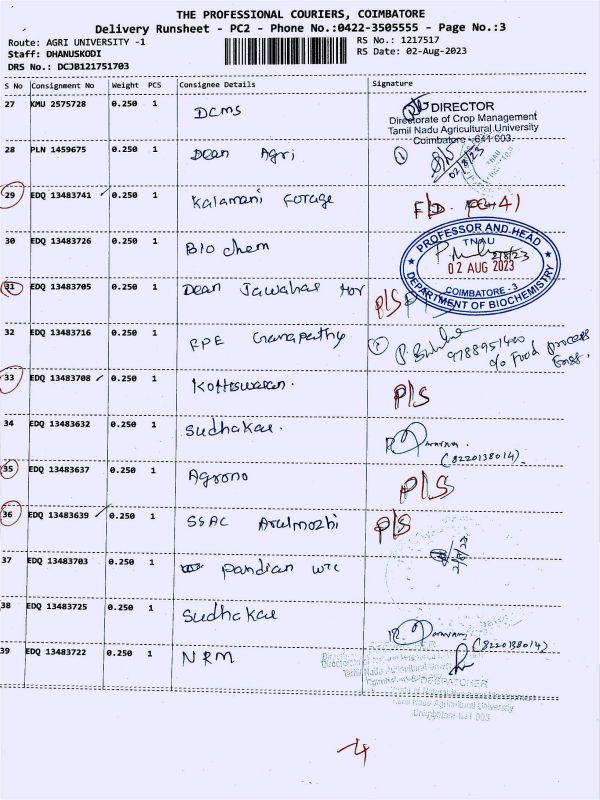 THE PROFESSIONAL COURIERS, COIMBATORE
Delivery Runsheet - PC2 - Phone No.:0422-3505555 - Page No.:3
Route: AGRI UNIVERSITY -1
RS No.: 1217517
Staff: DHANUSKODI
RS Date: 02-Aug-2023
DRS No.: DCJB121751703
S No Consignment No Weight PCS Consignee Details Signature
27 KMU 2575728 0.250 1 DCMS
DIRECTOR
Directorate of Crop Management
Tamil Nadu Agricultural University
Coimbatore - 641 003.
28 PLN 1459675 0.250 1 Dean Agri 1
02/8/23
29 EDQ 13483741 0.250 1 Kalamani Forage
30 EDQ 13483726 0.250 1 Bio chem
PROFESSOR AND HEAD
TNAU
2/8/23
02 AUG 2023
COIMBATORE - 3
DEPARTMENT OF BIOCHEMISTRY
31 EDQ 13483705 0.250 1 Dean Jawahar Hor P/S
32 EDQ 13483716 0.250 1 Ganapathy 2
9788951400
c/o Food process
Engg.
33 EDQ 13483708 0.250 1 Kotteswaran. P/S
34 EDQ 13483632 0.250 1 Sudhakar.
(8220138014)
35 EDQ 13483637 0.250 1 Agrono P/S
36 EDQ 13483639 0.250 1 SSAC Arulmozhi P/S
37 EDQ 13483703 0.250 1 pandian WTC
38 EDQ 13483725 0.250 1 Sudhakar
(8220138014)
39 EDQ 13483722 0.250 1 NRM
DESPATCHER
Tamil Nadu Agricultural University
Coimbatore-641 003